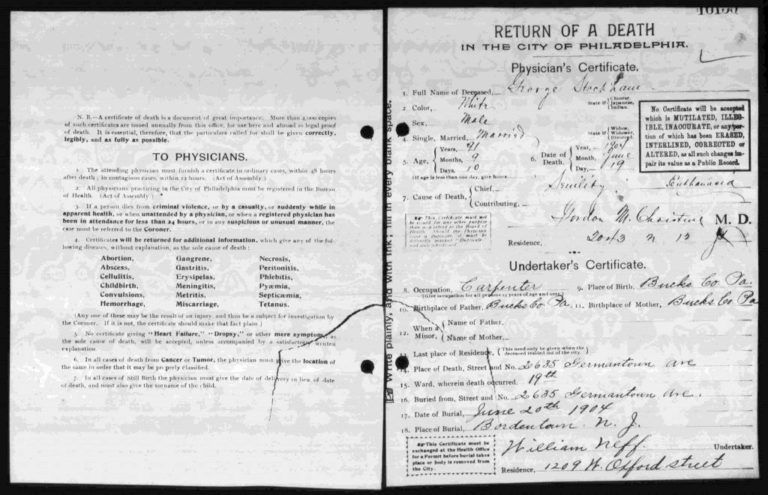 N. B.—A certificate of death is a document of great importance. More than 2,000 copies
of such certificates are issued annually from this office, for use here and abroad in legal proof
of death. It is essential, therefore, that the particulars called for shall be given correctly,
legibly, and as fully as possible.
TO PHYSICIANS.
The attending physicians must furnish a certificate in ordinary cases, within 48 hours
after death; in contagious cases, within 12 hours. (Act of Assembly).
2. All physicians practicing in the City of Philadelphia must be registered in the Bureau
of Health. (Act of Assembly).
3. If a person dies from criminal violence, or by a casualty, or suddenly while in
apparent health, or when unattended by a physician, or when a registered physician has
been in attendance for less than 24 hours, or in any suspicious or unusual manner, the
case must be referred to the Coroner.
4. Certificates will be returned for additional information, which give any of the fol-
lowing diseases, without explanation, as the sole cause of death:
Abortion, Gangrene, Necrosis,
Abscess, Gastritis, Peritonitis,
Cellulitis, Erysipelas, Phlebitis,
Childbirth, Meningitis, Pyæmia,
Convulsions, Metritis, Septicæmia,
Hemorrhage, Miscarriage, Tetanus.
(Any one of these may be the result of an injury, and thus be a subject for investigation by
the Coroner. If it is not, the certificate should make that fact plain.)
5. No certificate giving "Heart Failure," "Dropsy," or other mere symptom, as
the sole cause of death, will be accepted, unless accompanied by a satisfactory written
explanation.
6. In all cases of death from Cancer or Tumor, the physician must give the location of
the same in order that it may be properly classified.
7. In all cases of Still Birth the physician must give the date of delivery in lieu of date
of death, and must also give the surname of the child.
Write plainly, and with ink; fill in every blank space.
RETURN OF A DEATH
IN THE CITY OF PHILADELPHIA.
Physician's Certificate.
1. Full Name of Deceased, George
2. Color, White State if
3. Sex, Male
4. Single, Married, Married State if
5. Age, Years, 91 Months, 9 Days, 10
(If age is less than one day, give hours)
6. Date of Death, Year, 1904 Month, June Day, 19
No Certificate will be accepted
which is MUTILATED, ILLEG-
IBLE, INACCURATE, or any por-
tion of which has been ERASED,
INTERLINED, CORRECTED or
ALTERED, as all such changes im-
pair its value as a Public Record.
7. Cause of Death, Chief Senility
Contributing
Gordon M. Christine M. D.
Residence, 2043 N 12
Undertaker's Certificate.
8. Occupation, Carpenter 9. Place of Birth, Bucks Co Pa.
10. Birthplace of Father, Bucks Co Pa. 11. Birthplace of Mother, Bucks Co Pa
12. When a Minor, Name of Father,
Name of Mother,
13. Last place of Residence, (This need only be given when the deceased resided out of the city.)
14. Place of Death, Street and No. 2635 Germantown Ave
15. Ward, wherein death occurred, 19th
16. Buried from, Street and No. 2635 Germantown Ave.
17. Date of Burial, June 20th 1904
18. Place of Burial, Bordentown N. J.
This Certificate must be
exchanged at the Health Office
for a Permit before burial takes
place or body is removed from
the City.
William Neff Undertaker.
Residence, 1209 W Oxford street